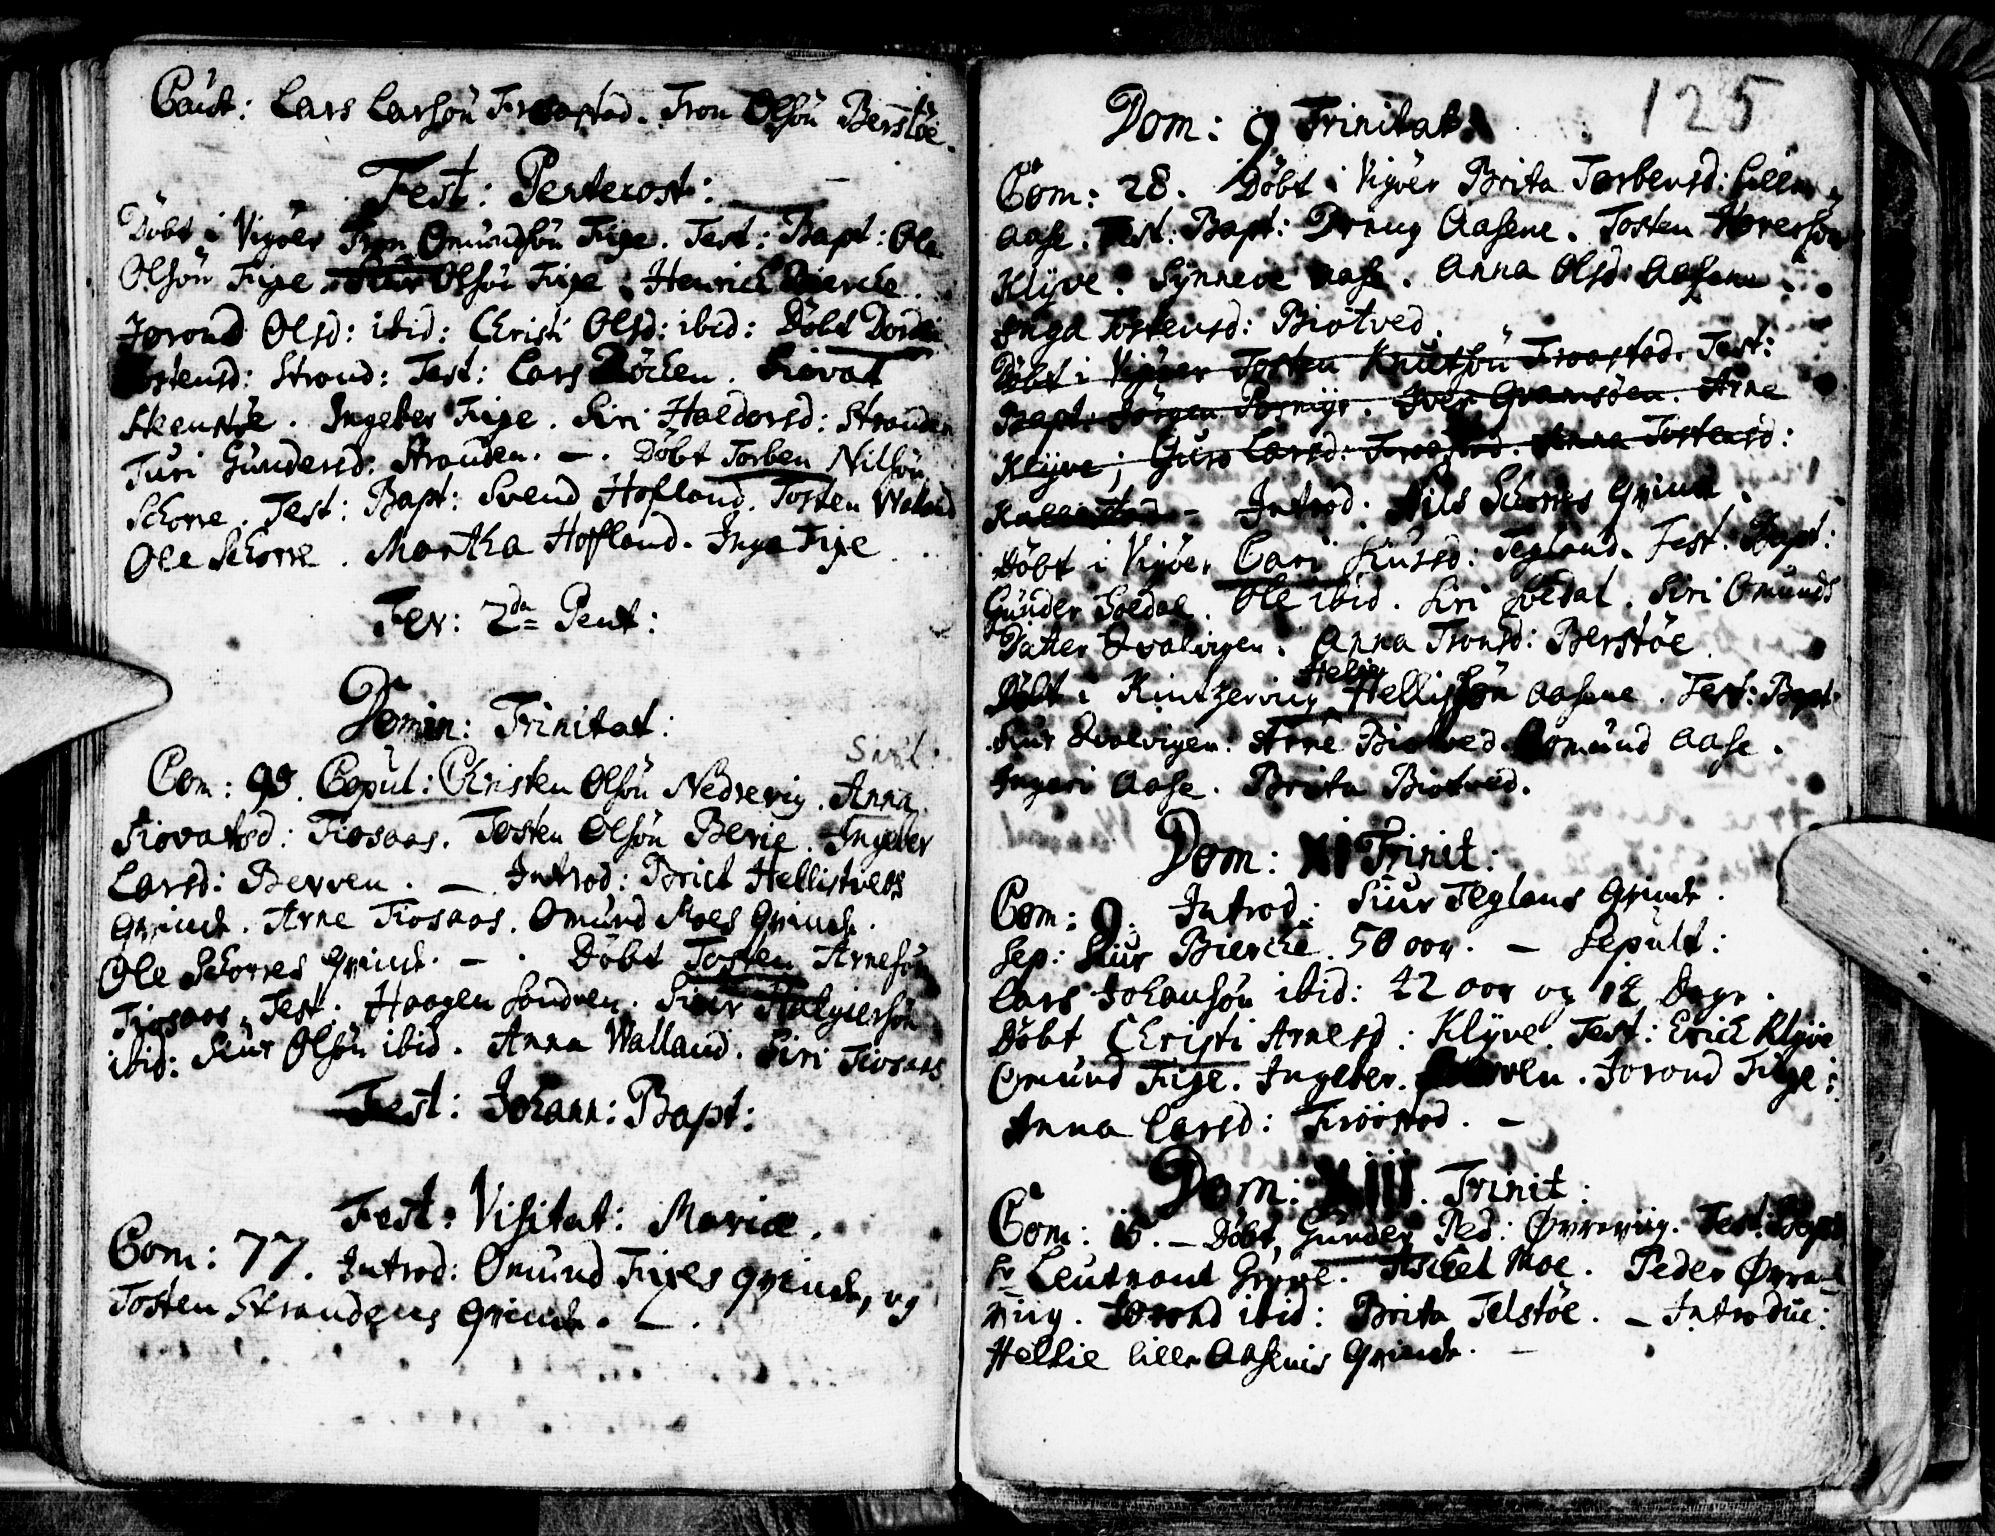 Caut: Lars Larsøn Froastad. Tron Olsøn Berstøe.
Fest: Pentecost:
Döbt i Vigöer Tron Omundsøn Fixe. Test: Bapt: Ole
Olsøn Fixe. Siur Olsøn Fixe. Henrich Biercke.
Jorond Olsd: ibid: Christi Olsd: ibid: Döbt Dordi
Tostensd: Strand: Test: Lars Röcken. Siovat
Skeustøe. Ingeber Fixe. Siri Haldorsd: Stranden
Turi Gundersd: Stranden. — . Döbt Torben Nilsøn
Schorre. Test: Bapt: Svend Hofland. Tosten Waland
Ole Schorre. Martha Hofland. Inga Fixe
Fer: 2da Pent:
Domin: Trinitat:
Com: 98. Copul: Christen Olsøn Nedrevig. Anna
Siovatsd: Tiosaas. Tosten Olsøn Berge. Ingeber
Larsd: Berven. — Introd: Brict Hellistveds
Qvinde. Arne Tiosaas. Omund Moes Qvinde.
Ole Schorres Qvinde. — . Döbt Tosten Arnesøn
Tiosaas. Test. Haagen Sandven. Siur Halgiersøn
ibid: Siur Olsøn ibid. Anna Walland. Siri Tiosaas
Fest: Johann: Bapt:
Fest: Visitat: Mariæ.
Com: 77. Introd: Omund Fixes Qvinde, og
Tosten Strandens Qvinde. — .
125
Dom: 9 Trinitat:
Com: 28. Döbt i Vigöer Brita Torbensd: Lille
Aase. Test: Bapt: Draug Aasene. Tosten Iversøn
Klyve. Synneve Aase. Anna Olsd: Aasene
Inga Tostensd: Biotved.
Döbt i Vigöer Tosten Knutsøn Froastad. Test:
Bapt: Jörgen Pornigr. Iver Gramsöen. Arne
Klyve; Guro Larsd: Froastad. Anna Tostensd:
Kallestad — Introd: Nils Schorres Qvinde.
Döbt i Vigöer Cari Siursd: Tegland. Test. Bapt:
Gunder Soedal. Ole ibid. Siri Soedal. Siri Omunds
Datter Qvalvigen. Anna Tronsd: Berstøe.
Döbt i Kintzervig Helie Hellissøn Aasene. Test: Bapt:
Siur Qvalvigen. Arne Biotved. Omund Aase.
Ingeri Aase. Brita Biotved.
Dom: XI Trinit:
Com: 9. Introd: Siur Teglans Qvinde.
Sep: Siur Biercke. 50 aar. — Sepult:
Lars Johansøn ibid: 22 aar og 12 Dage.
Döbt Christi Arnesd: Klyve. Test: Erich Klyve
Omund Fixe. Ingeber Berven. Jorond Fixe:
Anna Larsd: Froastad. —
Dom: XIII. Trinit:
Com: 15. — Döbt Gunder Ped: Øvrevig. Test: Bapt
hr Leutnant Grøve. Aschel Moe. Peder Øvre-
vig. Jorond ibid: Brita Telstøe. — Introduc:
Hellie lille Aasenis Qvinde. —